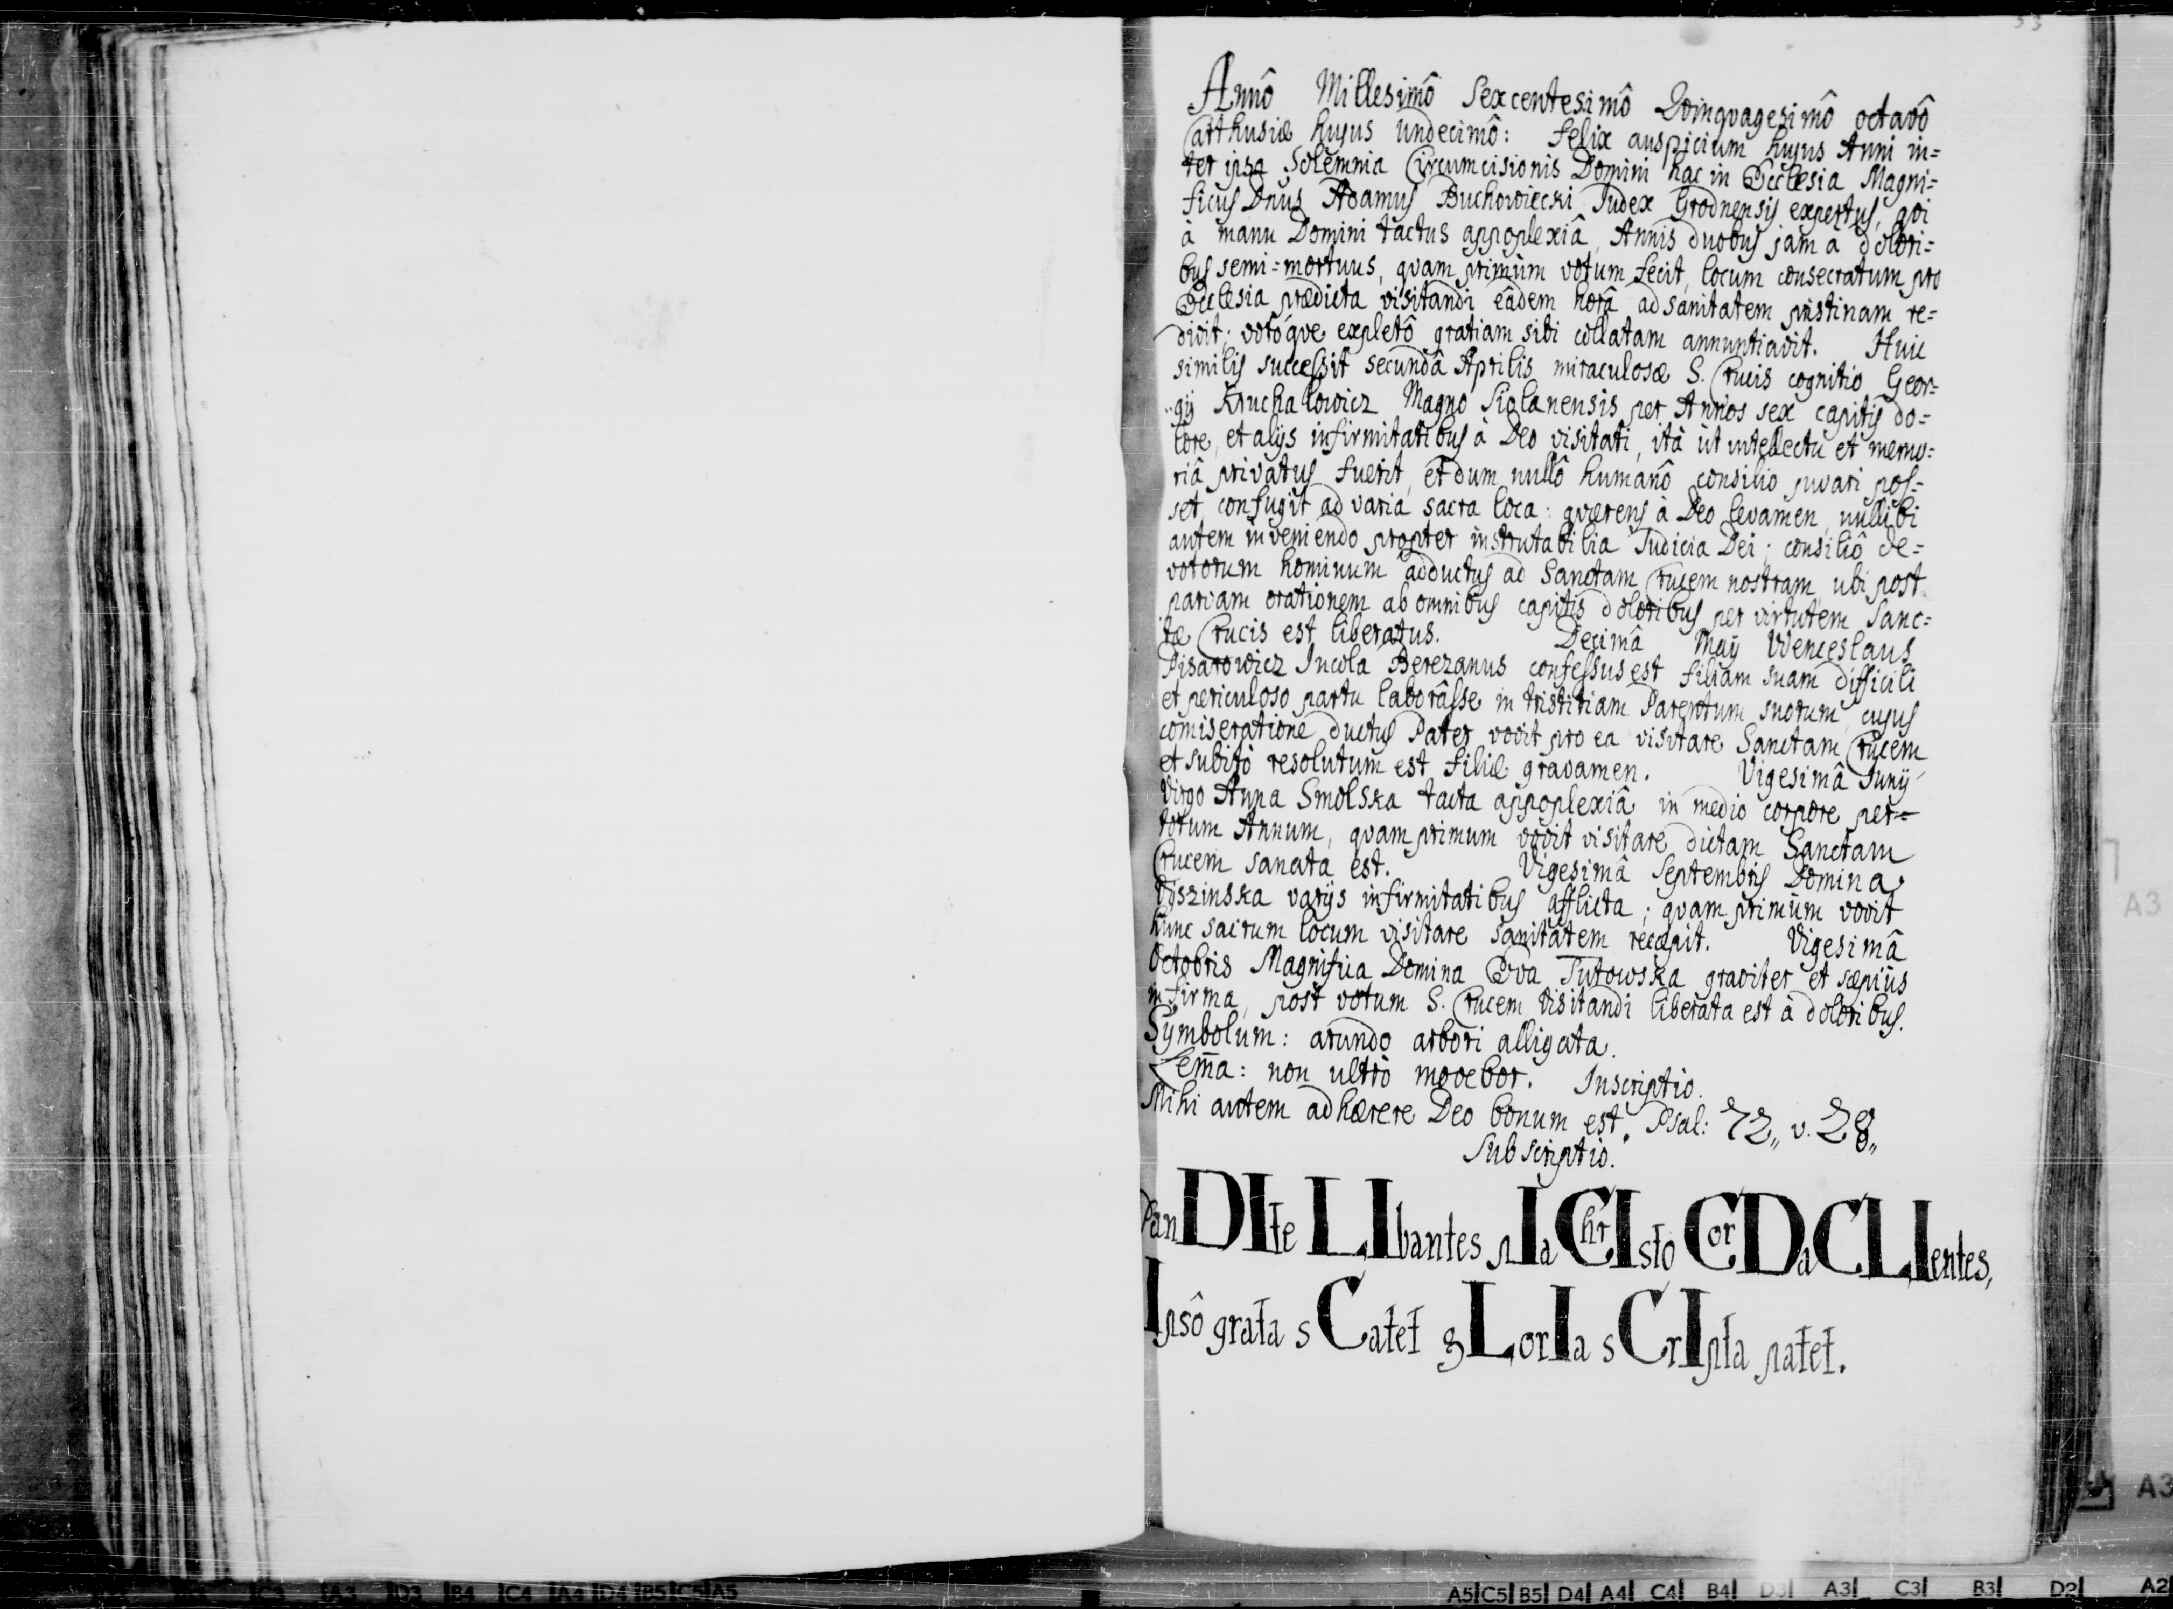 53
Annô Millesimô Sexcentesimô Qvinqvagesimô octavô
Carthusiæ hujus undecimô: Felix auspicium hujus Anni in=
ter ipsa Solemnia Circumcisionis Domini hac in Ecclesia Magni=
ficus Dnus Adamus Buchowiecki Judex Grodnensis expertus, qvi
à manu Domini tactus appoplexiâ, Annis duobus jam à dolori=
bus semi=mortuus, qvam primùm votum fecit, locum consecratum pro
Ecclesia prædicta visitandi eâdem horâ ad sanitatem pristinam re=
divit; votôqve expletô gratiam sibi collatam annuntiavit. Huic
similis successit secundâ Aprilis miraculosæ S. Crucis cognitio Geor=
gij Kruchalowicz Magno Siolanensis per Annos sex capitis do=
lore, et alijs infirmitatibus à Deo visitati, ità ùt intellectu et memo=
riâ privatus fuerit, et dum nullô humanô consilio juvari pos=
set, confugit ad varia sacra loca: qværens à Deo levamen, nullibi
autem inveniendo propter inscrutabilia Judicia Dei; consiliô de=
votorum hominum adductus ad Sanctam Crucem nostram, ubi post
parvam orationem ab omnibus capitis doloribus per virtutem Sanc=
tæ Crucis est liberatus. Decimâ Maij Wenceslaus
Pisarowicz Incola Berezanus confessus est filiam suam difficili
et periculoso partu laborâsse in tristitiam Parentum suorum, cujus
comiseratione ductus Pater vovit pro ea visitare Sanctam Crucem
et subitò resolutum est filiæ gravamen. Vigesimâ Junij
Virgo Anna Smolska tacta appoplexiâ in medio corpore per=
totum Annum, qvam primum vovit visitare dictam Sanctam
Crucem sanata est. Vigesimâ Septembris Domina
varijs infirmitatibus afflicta; qvam primùm vovit
hunc sacrum locum visitare sanitatem recepit. Vigesimâ
Octobris Magnifica Domina Eva Tutowska graviter et sæpiùs
infirma, post votum S. Crucem visitandi liberata est à doloribus.
Symbolum: arundo arbori alligata.
Lem̄a: non ultrò movebor. Inscriptio.
Mihi autem adhærere Deo bonum est. Psal: 72,, v. 28,,
Subscriptio.
PanDIte LIbantes pIa ChrIsto CorDa CLIentes,
Ipsô grata sCatet gLorIa sCrIpta patet.
A3
A3
C3 A3 D3 B4 C4 A4 D4 B5 C5 A5
A5 C5 B5 D4 A4 C4 B4 D3 A3 C3 B3 D2 A2